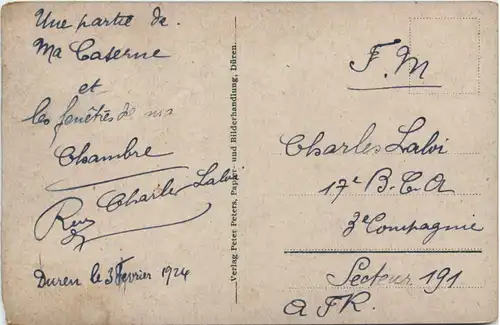 Une partie de
Ma Caserne
et
les fenêtres de ma
Chambre
Charles Laloi
Duren le 3 Fevrier 1924
Verlag Peter Peters, Papier- und Bilderhandlung, Düren.
F. M
Charles Laloi
17e B.C.A
3e Compagnie
Secteur 191
A F R.